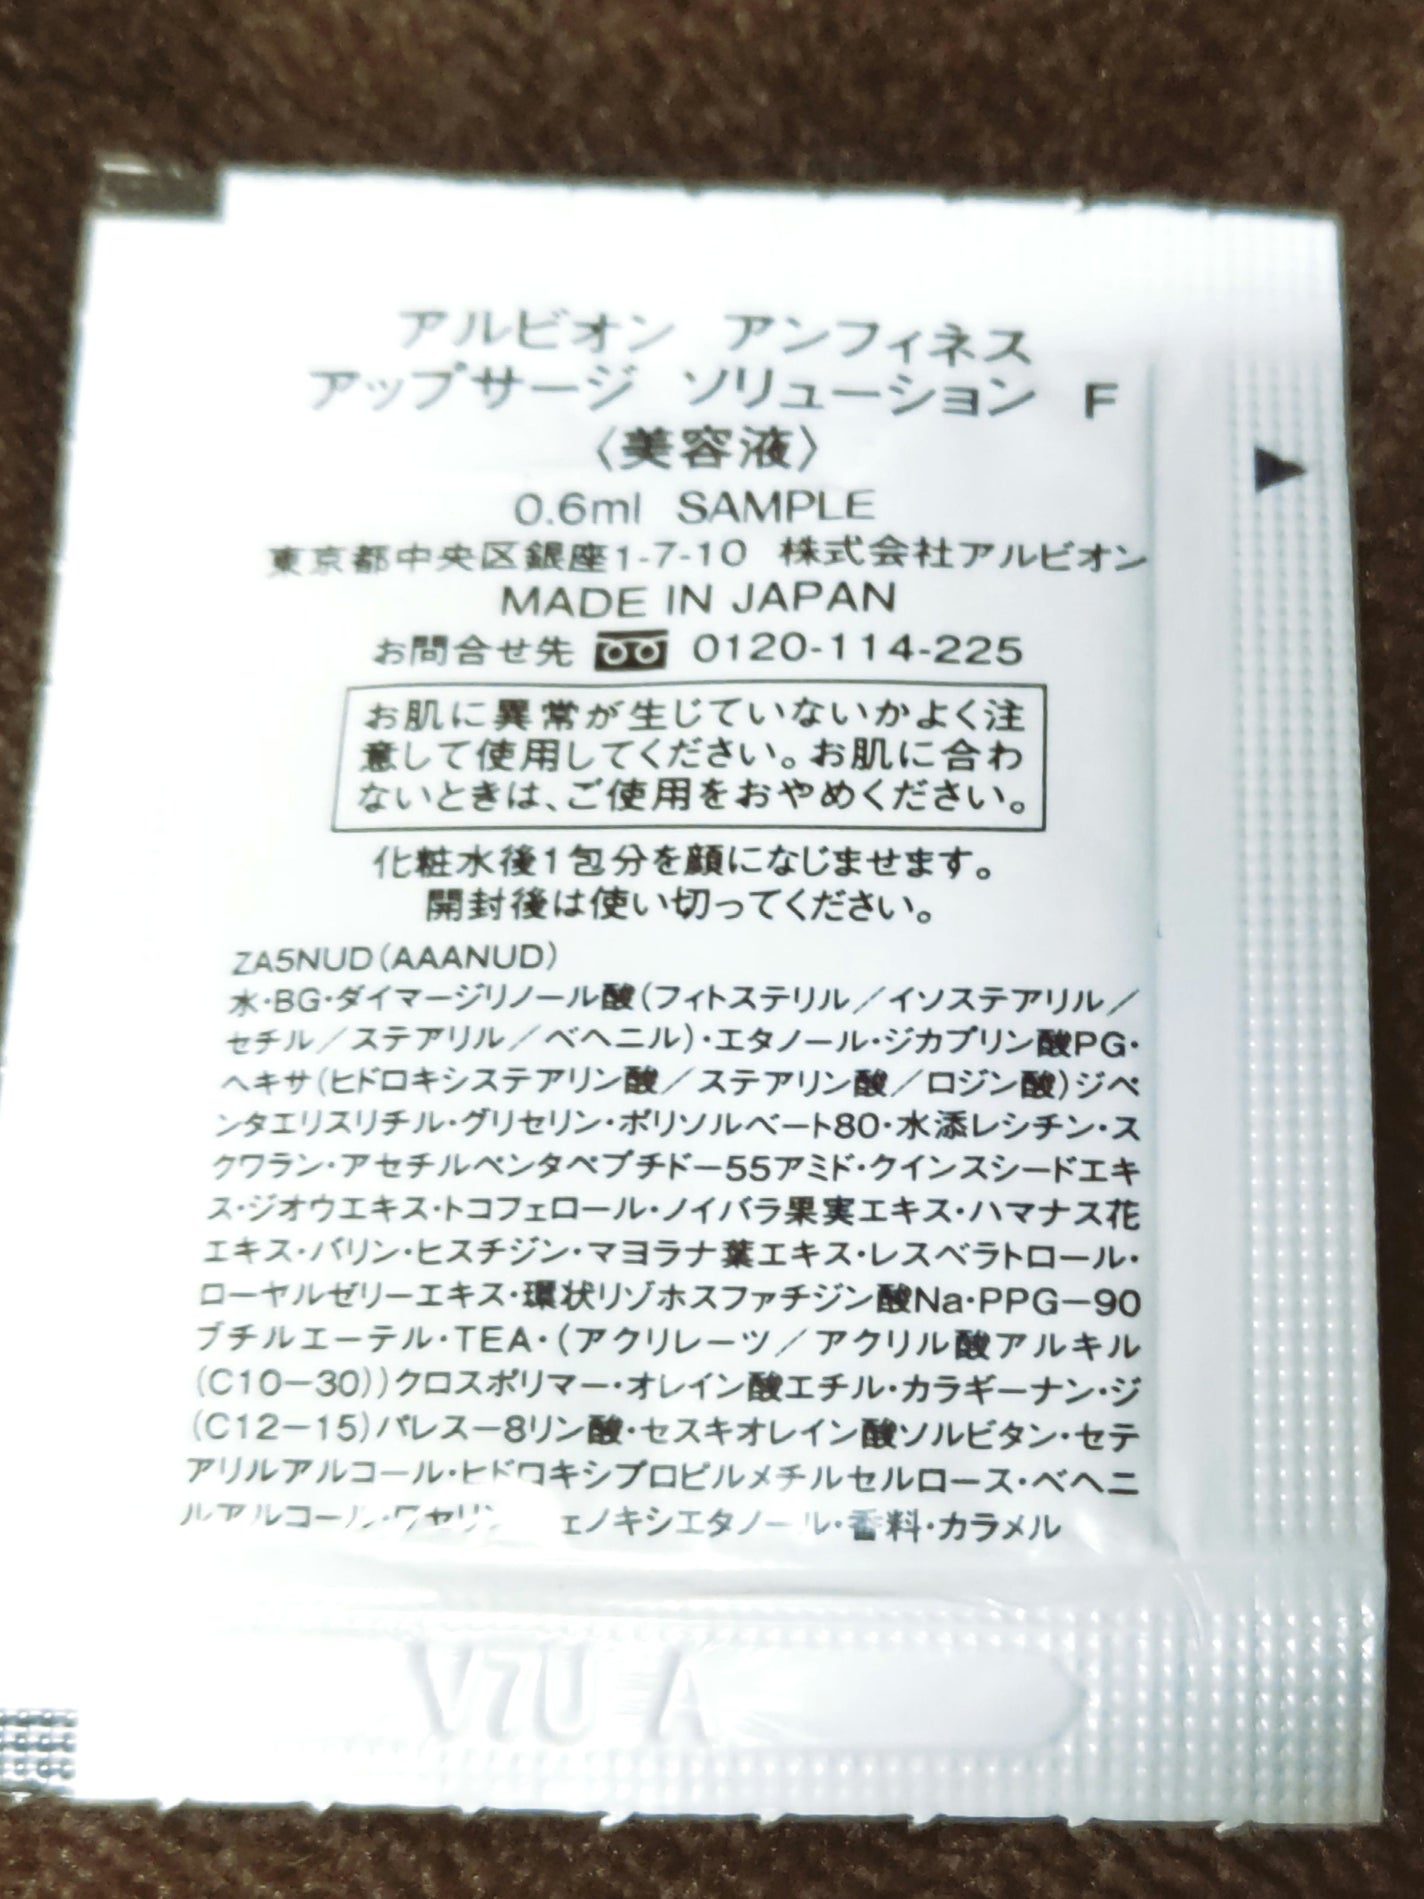 アルビオン アンフィネス
アップサージ ソリューション F
〈美容液〉
0.6ml SAMPLE
東京都中央区銀座1-7-10 株式会社アルビオン
MADE IN JAPAN
お問合せ先 0120-114-225
お肌に異常が生じていないかよく注
意して使用してください。お肌に合わ
ないときは、ご使用をおやめください。
化粧水後1包分を顔になじませます。
開封後は使い切ってください。
ZA5NUD(AAANUD)
水・BG・ダイマージリノール酸(フィトステリル/イソステアリル/
セチル/ステアリル/ベヘニル)・エタノール・ジカプリン酸PG・
ヘキサ(ヒドロキシステアリン酸/ステアリン酸/ロジン酸)ジペ
ンタエリスリチル・グリセリン・ポリソルベート80・水添レシチン・ス
クワラン・アセチルペンタペプチドー55アミド・クインスシードエキ
ス・ジオウエキス・トコフェロール・ノイバラ果実エキス・ハマナス花
エキス・バリン・ヒスチジン・マヨラナ葉エキス・レスベラトロール・
ローヤルゼリーエキス・環状リゾホスファチジン酸Na・PPG−90
ブチルエーテル・TEA・(アクリレーツ/アクリル酸アルキル
(C10−30))クロスポリマー・オレイン酸エチル・カラギーナン・ジ
(C12−15)パレスー8リン酸・セスキオレイン酸ソルビタン・セテ
アリルアルコール・ヒドロキシプロピルメチルセルロース・ベヘニ
ルアルコール・ ェノキシエタノール・香料・カラメル